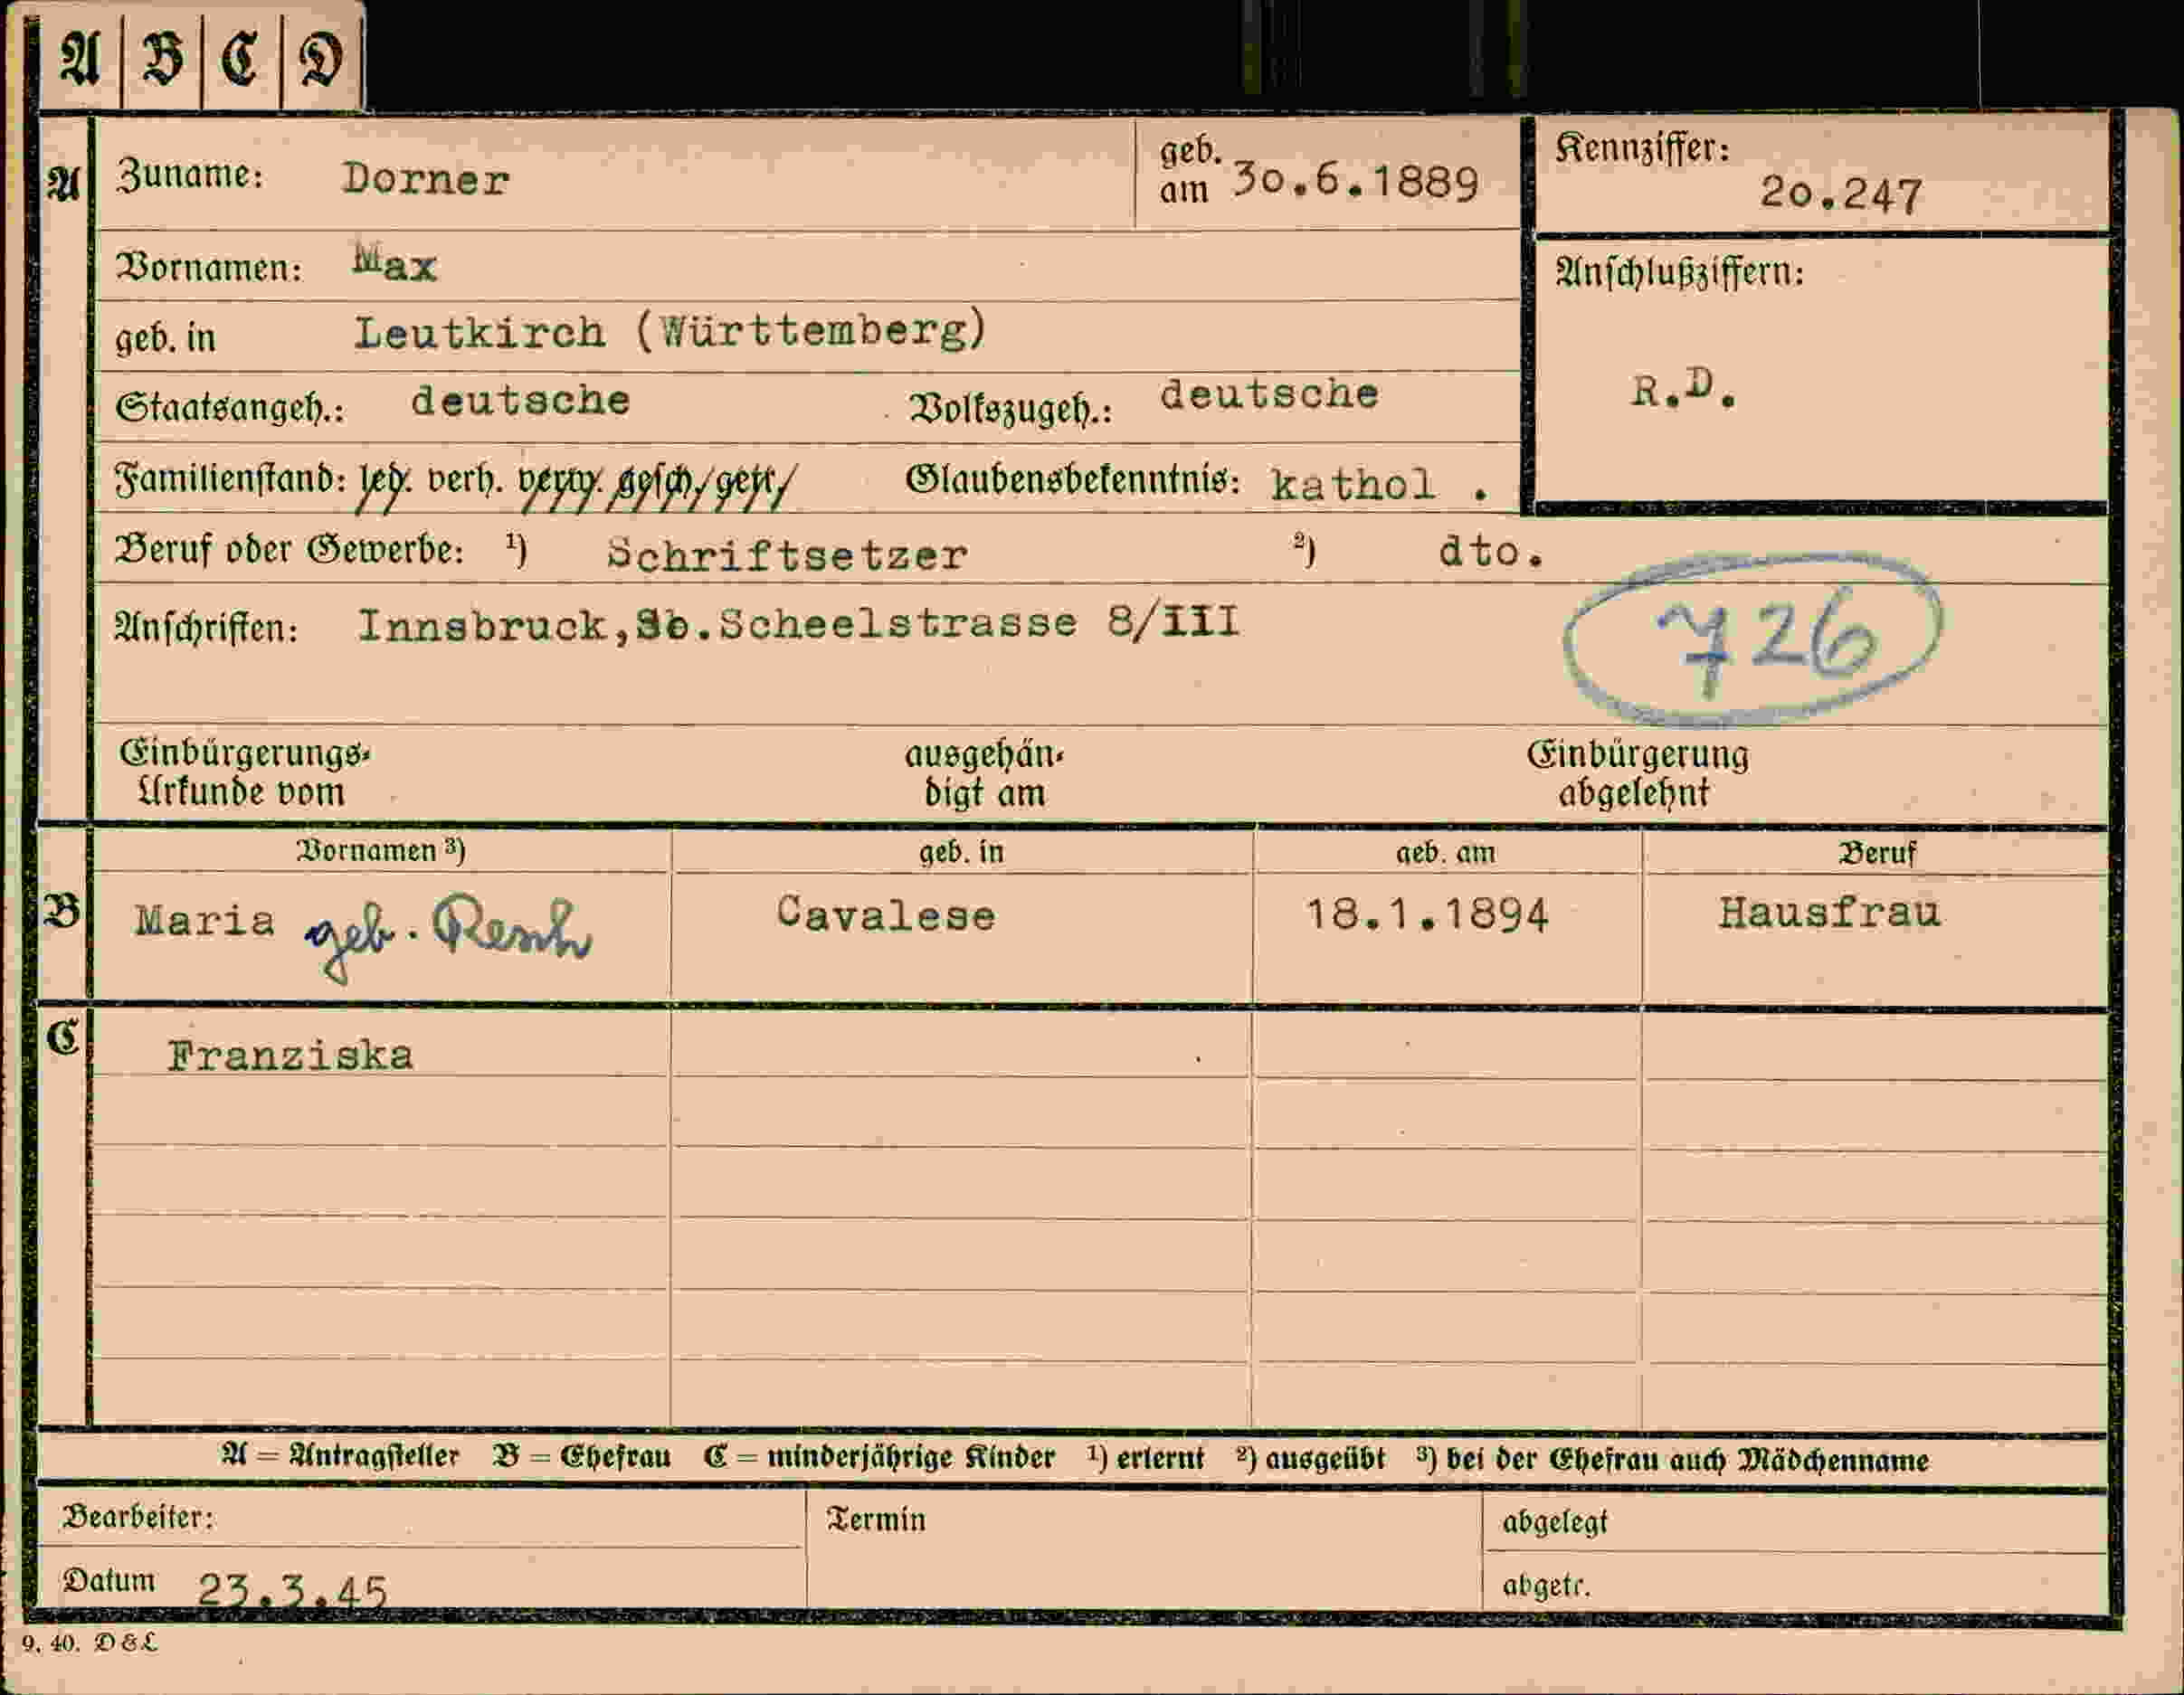 A B C D
A Zuname: Dorner geb. am 30.6.1889 Kennziffer: 20.247
Vornamen: Max
Anschlußziffern:
geb. in Leutkirch (Württemberg)
Staatsangeh.: deutsche Volkszugeh.: deutsche R.D.
Familienstand: led. verh. verw. gesch. getr. Glaubensbekenntnis: kathol .
Beruf oder Gewerbe: 1) Schriftsetzer 2) dto.
Anschriften: Innsbruck, Scheelstrasse 8/III
726
Einbürgerungs- ausgehän- Einbürgerung
Urkunde vom digt am abgelehnt
Vornamen 3) geb. in geb. am Beruf
B Maria geb. Resch Cavalese 18.1.1894 Hausfrau
C Franziska
A = Antragsteller B = Ehefrau C = minderjährige Kinder 1) erlernt 2) ausgeübt 3) bei der Ehefrau auch Mädchenname
Bearbeiter: Termin abgelegt
Datum 23.3.45 abgetr.
9. 40. D & L